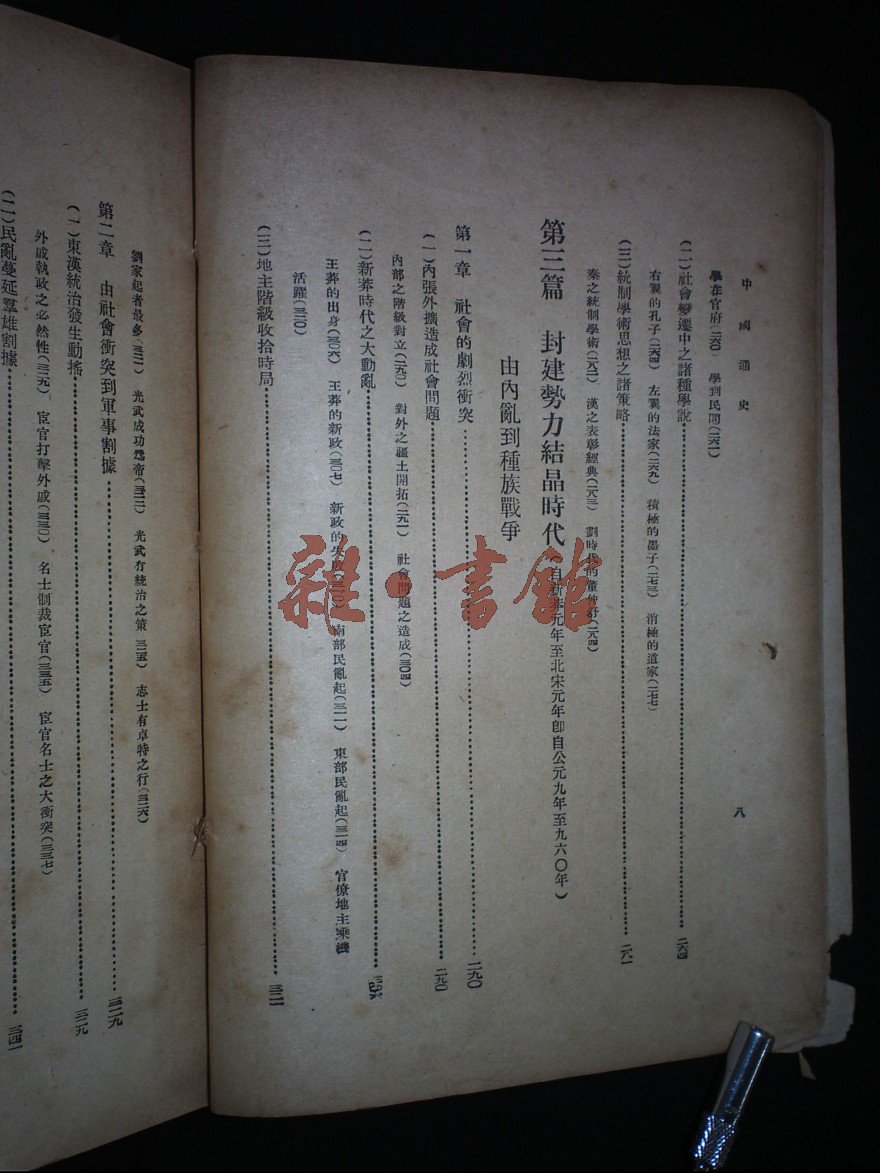 中國通史
八
學在官府(二六〇) 學到民間(二六二)
(二)社會變遷中之諸種學說……二六四
右翼的孔子(二六四) 左翼的法家(二六九) 積極的墨子(二七三) 消極的道家(二七七)
(三)統制學術思想之諸策略……二八一
秦之統制學術(二八二) 漢之表彰經典(二八三) 劃時代的董仲舒(二八四)
第三篇 封建勢力結晶時代(自新莽元年至北宋元年卽自公元九年至九六〇年)
由內亂到種族戰爭
第一章 社會的劇烈衝突……二九〇
(一)內張外擴造成社會問題……二九〇
內部之階級對立(二九〇) 對外之疆土開拓(二九一) 社會問題之造成(三〇四)
(二)新莽時代之大動亂……三〇六
王莽的出身(三〇六) 王莽的新政(三〇七) 新政的失敗(三一〇) 南部民亂起(三一一) 東部民亂起(三一四) 官僚地主乘機
活躍(三二〇)
(三)地主階級收拾時局……三二一
劉家起者最多(三二一) 光武成功爲帝(三二二) 光武有統治之策 三二五) 志士有卓特之行(三二六)
第二章 由社會衝突到軍事割據……三二九
(一)東漢統治發生動搖……三二九
外戚執政之必然性(三二九) 宦官打擊外戚(三三二) 名士制裁宦官(三三五) 宦官名士之大衝突(三三七)
(二)民亂蔓延羣雄割據……三四一
雜·書館